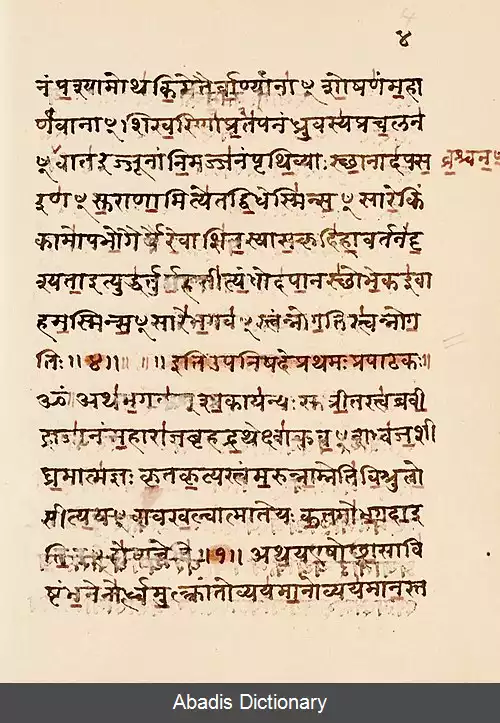 ४
नं पश्यामोथकिमेतैर्वाण्यांनाꣳशोषणं महा
र्णवानाꣳशिखरिणां प्रतपनं ध्रुवस्यप्रचलन
ꣳवातरज्जूनांनिमज्जनंपृथिव्याः स्छानादपस व्रश्चनꣳ
रणꣳसुराणामित्येतद्विधेस्मिन्सꣳसारेकिं
कामोपभोगैर्यैरेवाशितस्यासकृदिहावर्तनंदृ
श्यताइत्युद्धर्तुमर्हसीत्यंधोदपानस्छोभेकइवा
हमस्मिन्सꣳसारेभगवꣳस्त्वंन्नोगतिस्त्वंन्नोग
तिः॥४॥ ॥इतिउपनिषदिप्रथमः प्रपाठकः॥
ॐ अथभगवा कायन्यः सुप्रीतस्त्वब्रवी
द्राजानंमहाराजबृहद्रथेक्ष्वाकवꣳशध्वजशी
घ्रमात्मज्ञः कृतकृत्यस्त्वंमरुन्नाम्नेतिविश्रुतो
सीत्ययंवावखल्वात्मातेयः कतमोभगवाइ
ति होवाचेति॥१॥ अथयएषोछ्वासावि
ष्टंभनेनोर्ध्वमुत्क्रांतोव्ययमानोव्ययमानस्त
Abadis Dictionary